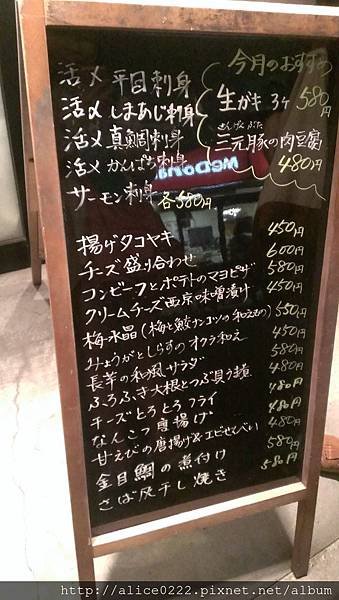 今月のおすすめ
生ガキ 3ケ 580円
さんげんぶた
三元豚の肉豆腐
480円
活〆 平目刺身
活〆 しまあじ刺身
活〆 真鯛刺身
活〆 かんぱち刺身
サーモン刺身 各580円
McDona
揚げタコヤキ 450円
チーズ盛り合わせ 600円
コンビーフとポテトのマヨピザ 580円
クリームチーズ西京味噌漬け 450円
梅水晶(梅と鮫ナンコツの和えもの) 550円
みょうがとしらすのオクラ和え 450円
長芋の和風サラダ 580円
ふろふき大根とつぶ貝うま煮 480円
チーズとろとろフライ 480円
なんこつ唐揚げ 480円
甘えびの唐揚げ&エビせんべい 480円
金目鯛の煮付け 580円
さば灰干し焼き 580円
http://alice0222.pixnet.net/album